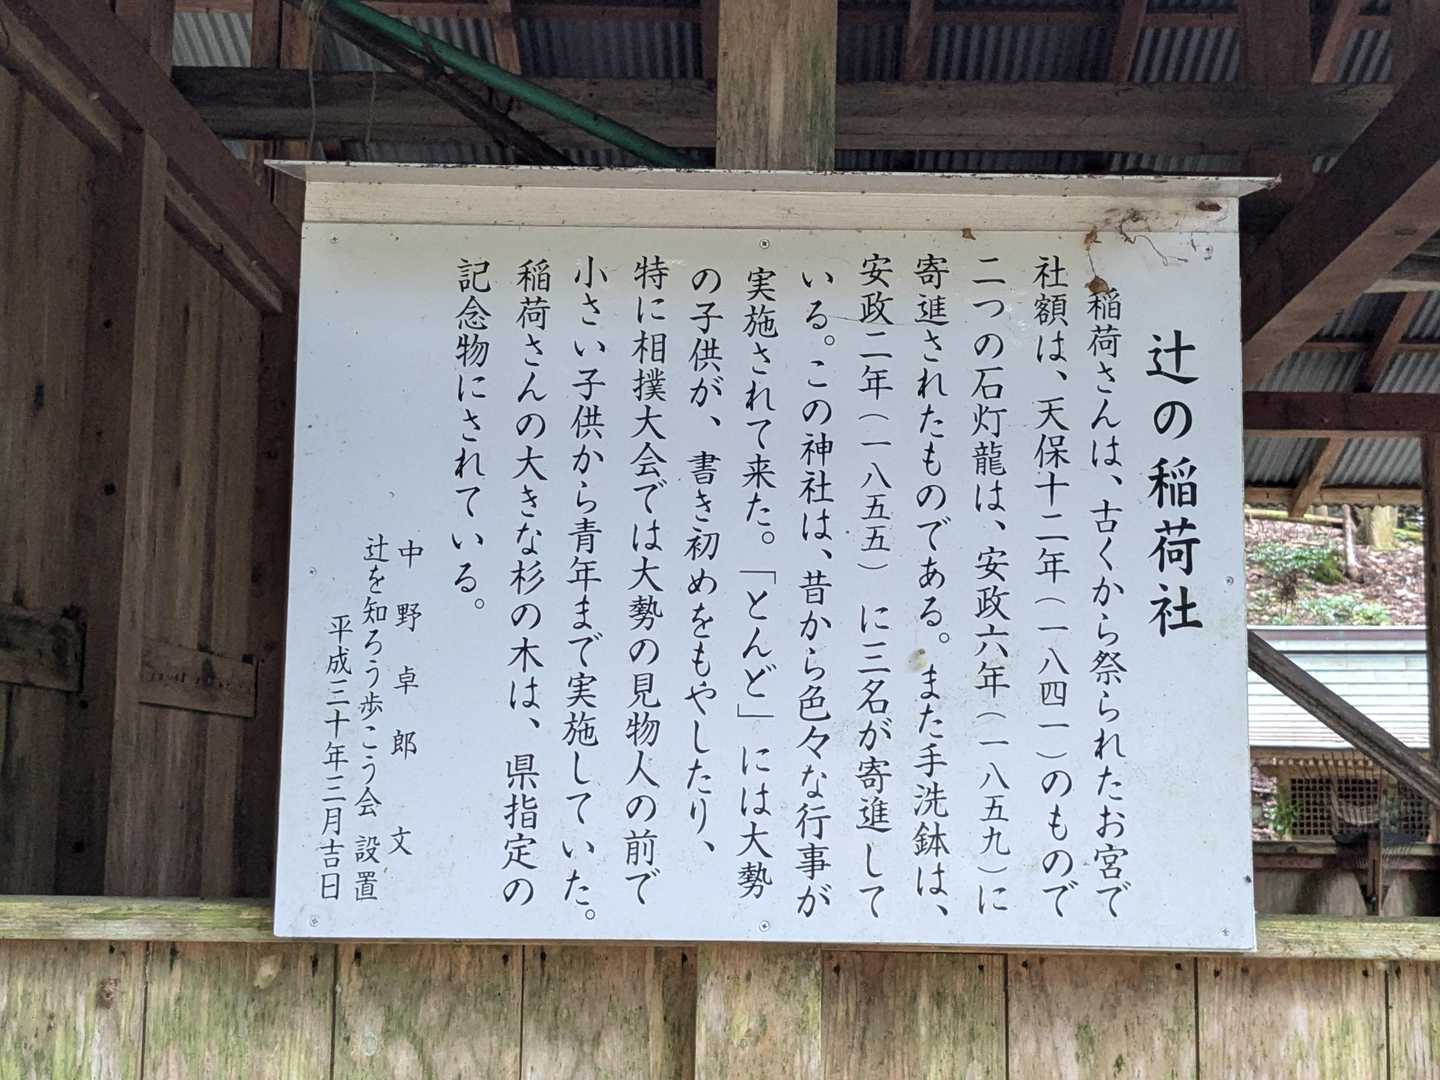 辻の稲荷社
稲荷さんは、古くから祭られたお宮で
社額は、天保十二年（一八四一）のもので
二つの石灯龍は、安政六年（一八五九）に
寄進されたものである。また手洗鉢は、
安政二年（一八五五）に三名が寄進して
いる。この神社は、昔から色々な行事が
実施されて来た。「とんど」には大勢
の子供が、書き初めをもやしたり、
特に相撲大会では大勢の見物人の前で
小さい子供から青年まで実施していた。
稲荷さんの大きな杉の木は、県指定の
記念物にされている。
中野卓郎 文
辻を知ろう歩こう会 設置
平成三十年三月吉日